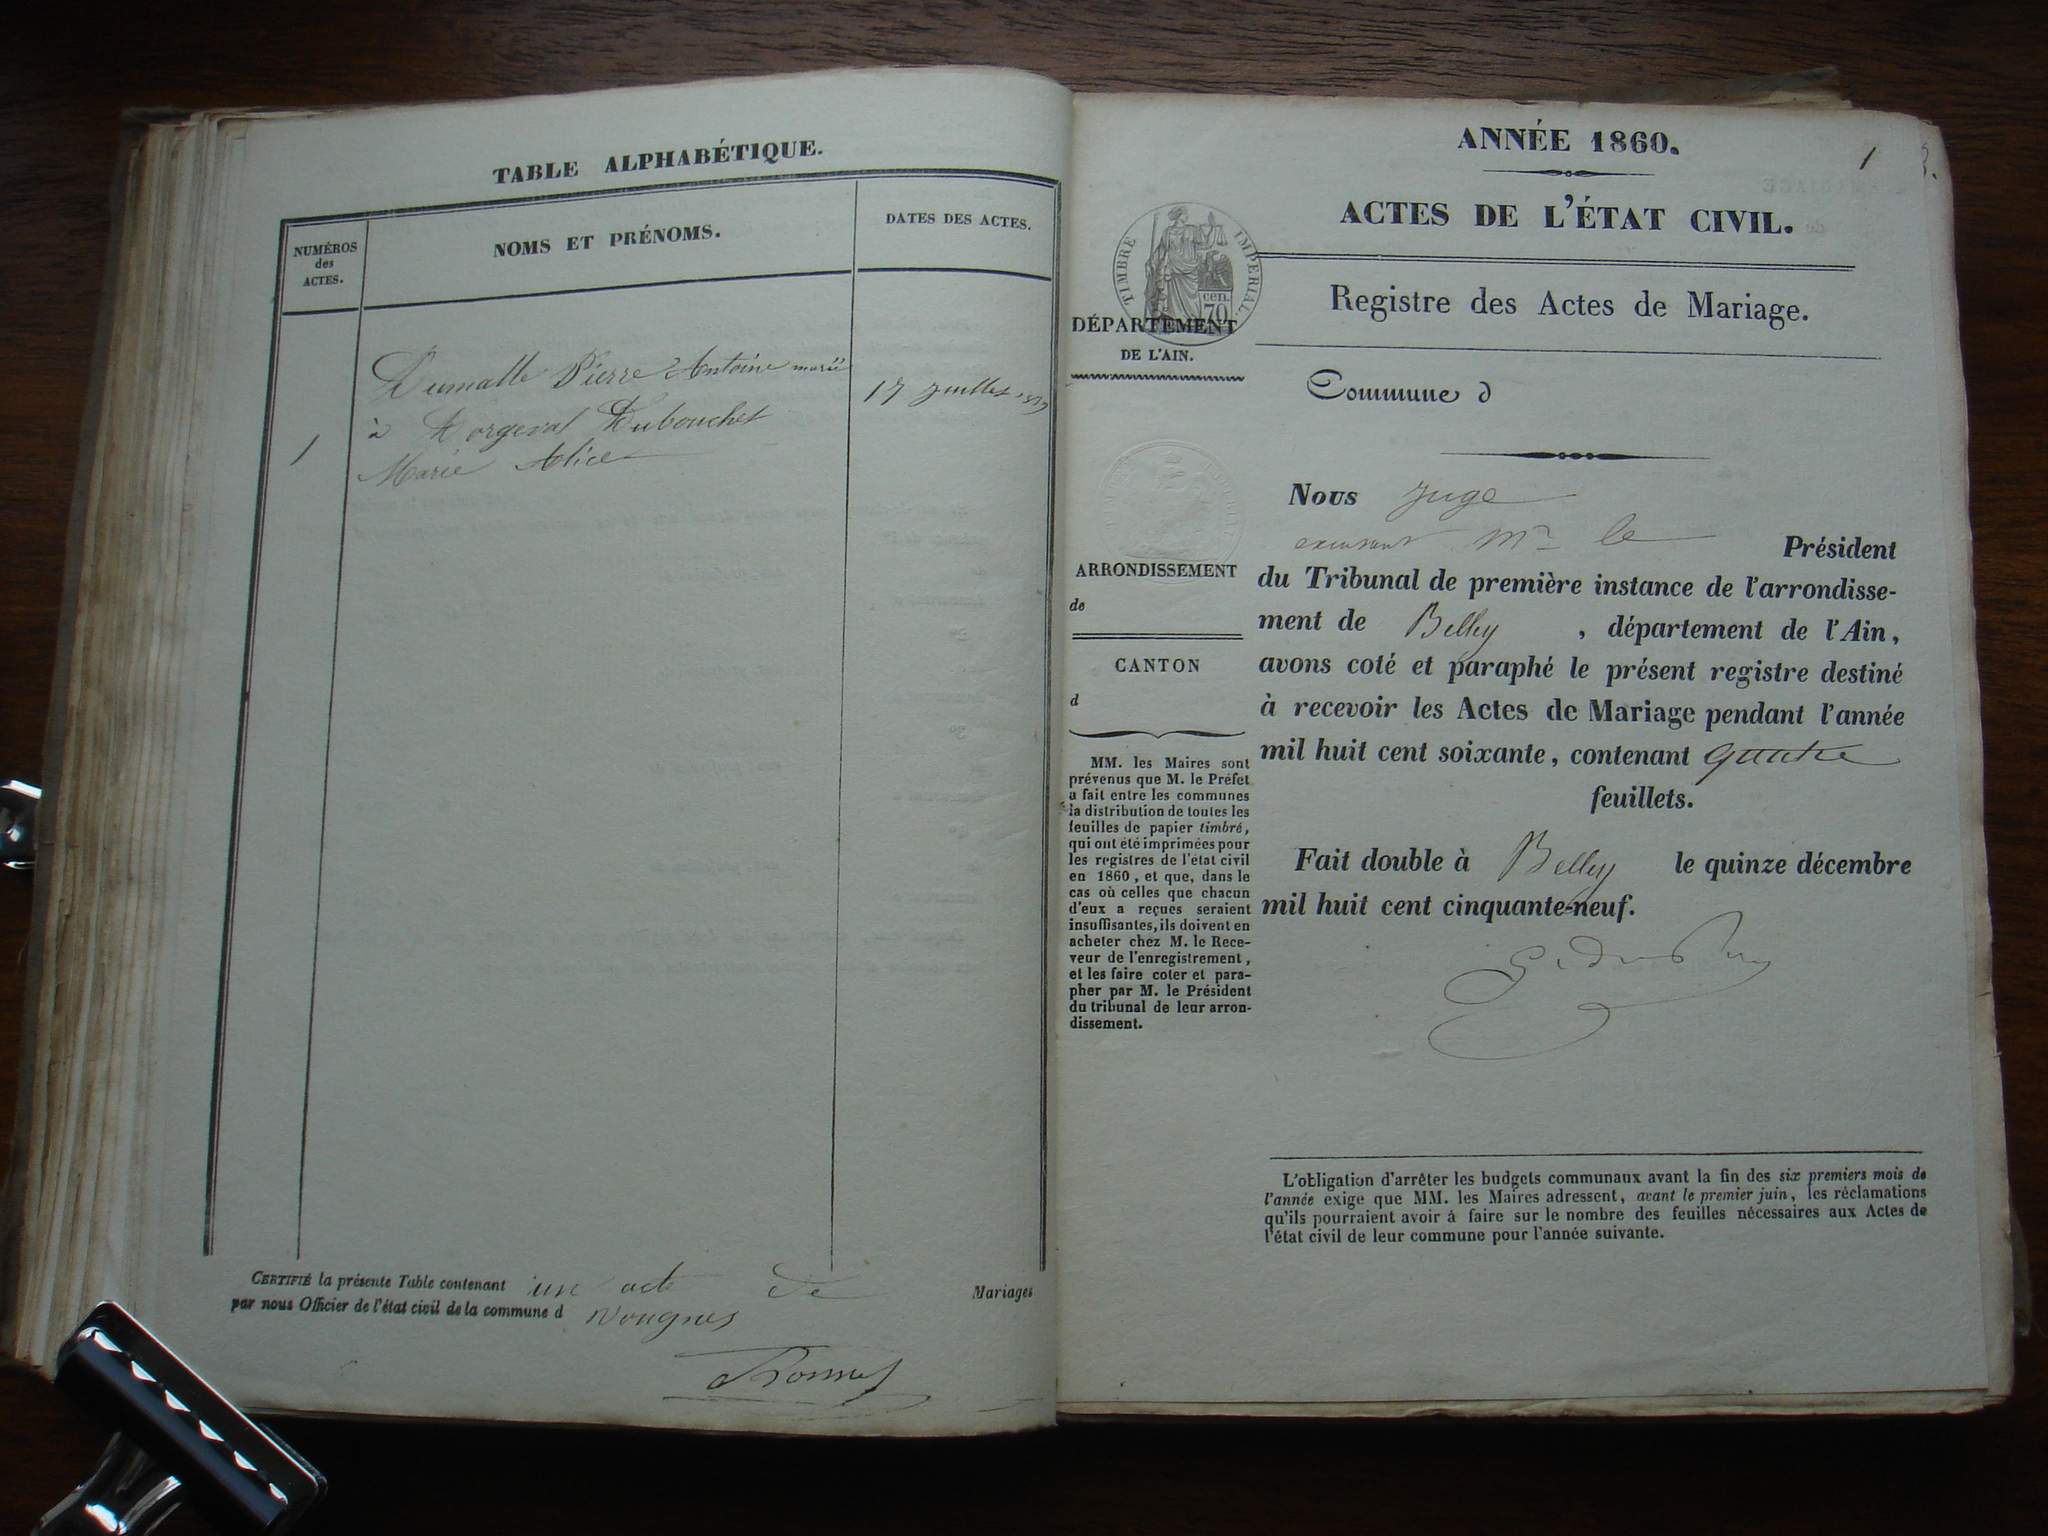 TABLE ALPHABÉTIQUE.
NUMÉROS
des
ACTES.
NOMS ET PRÉNOMS.
DATES DES ACTES.
Pierre Antoine marié
17 juillet 1859
à Dorgeval Dubouchet
1
Marie Alice
CERTIFIÉ la présente Table contenant un acte de Mariages
par nous Officier de l'état civil de la commune d
ANNÉE 1860.
1
ACTES DE L'ÉTAT CIVIL.
TIMBRE IMPERIAL
70 cen.
Registre des Actes de Mariage.
DÉPARTEMENT
DE L'AIN.
Commune d
ARRONDISSEMENT
de
CANTON
d
MM. les Maires sont
prévenus que M. le Préfet
a fait entre les communes
la distribution de toutes les
feuilles de papier timbré,
qui ont été imprimées pour
les registres de l'état civil
en 1860, et que, dans le
cas où celles que chacun
d'eux a reçues seraient
insuffisantes, ils doivent en
acheter chez M. le Rece-
veur de l'enregistrement,
et les faire coter et para-
pher par M. le Président
du tribunal de leur arron-
dissement.
Nous Juge
Mr le Président
du Tribunal de première instance de l'arrondisse-
ment de Belley, département de l'Ain,
avons coté et paraphé le présent registre destiné
à recevoir les Actes de Mariage pendant l'année
mil huit cent soixante, contenant quatre
feuillets.
Fait double à Belley le quinze décembre
mil huit cent cinquante-neuf.
L'obligation d'arrêter les budgets communaux avant la fin des six premiers mois de
l'année exige que MM. les Maires adressent, avant le premier juin, les réclamations
qu'ils pourraient avoir à faire sur le nombre des feuilles nécessaires aux Actes de
l'état civil de leur commune pour l'année suivante.